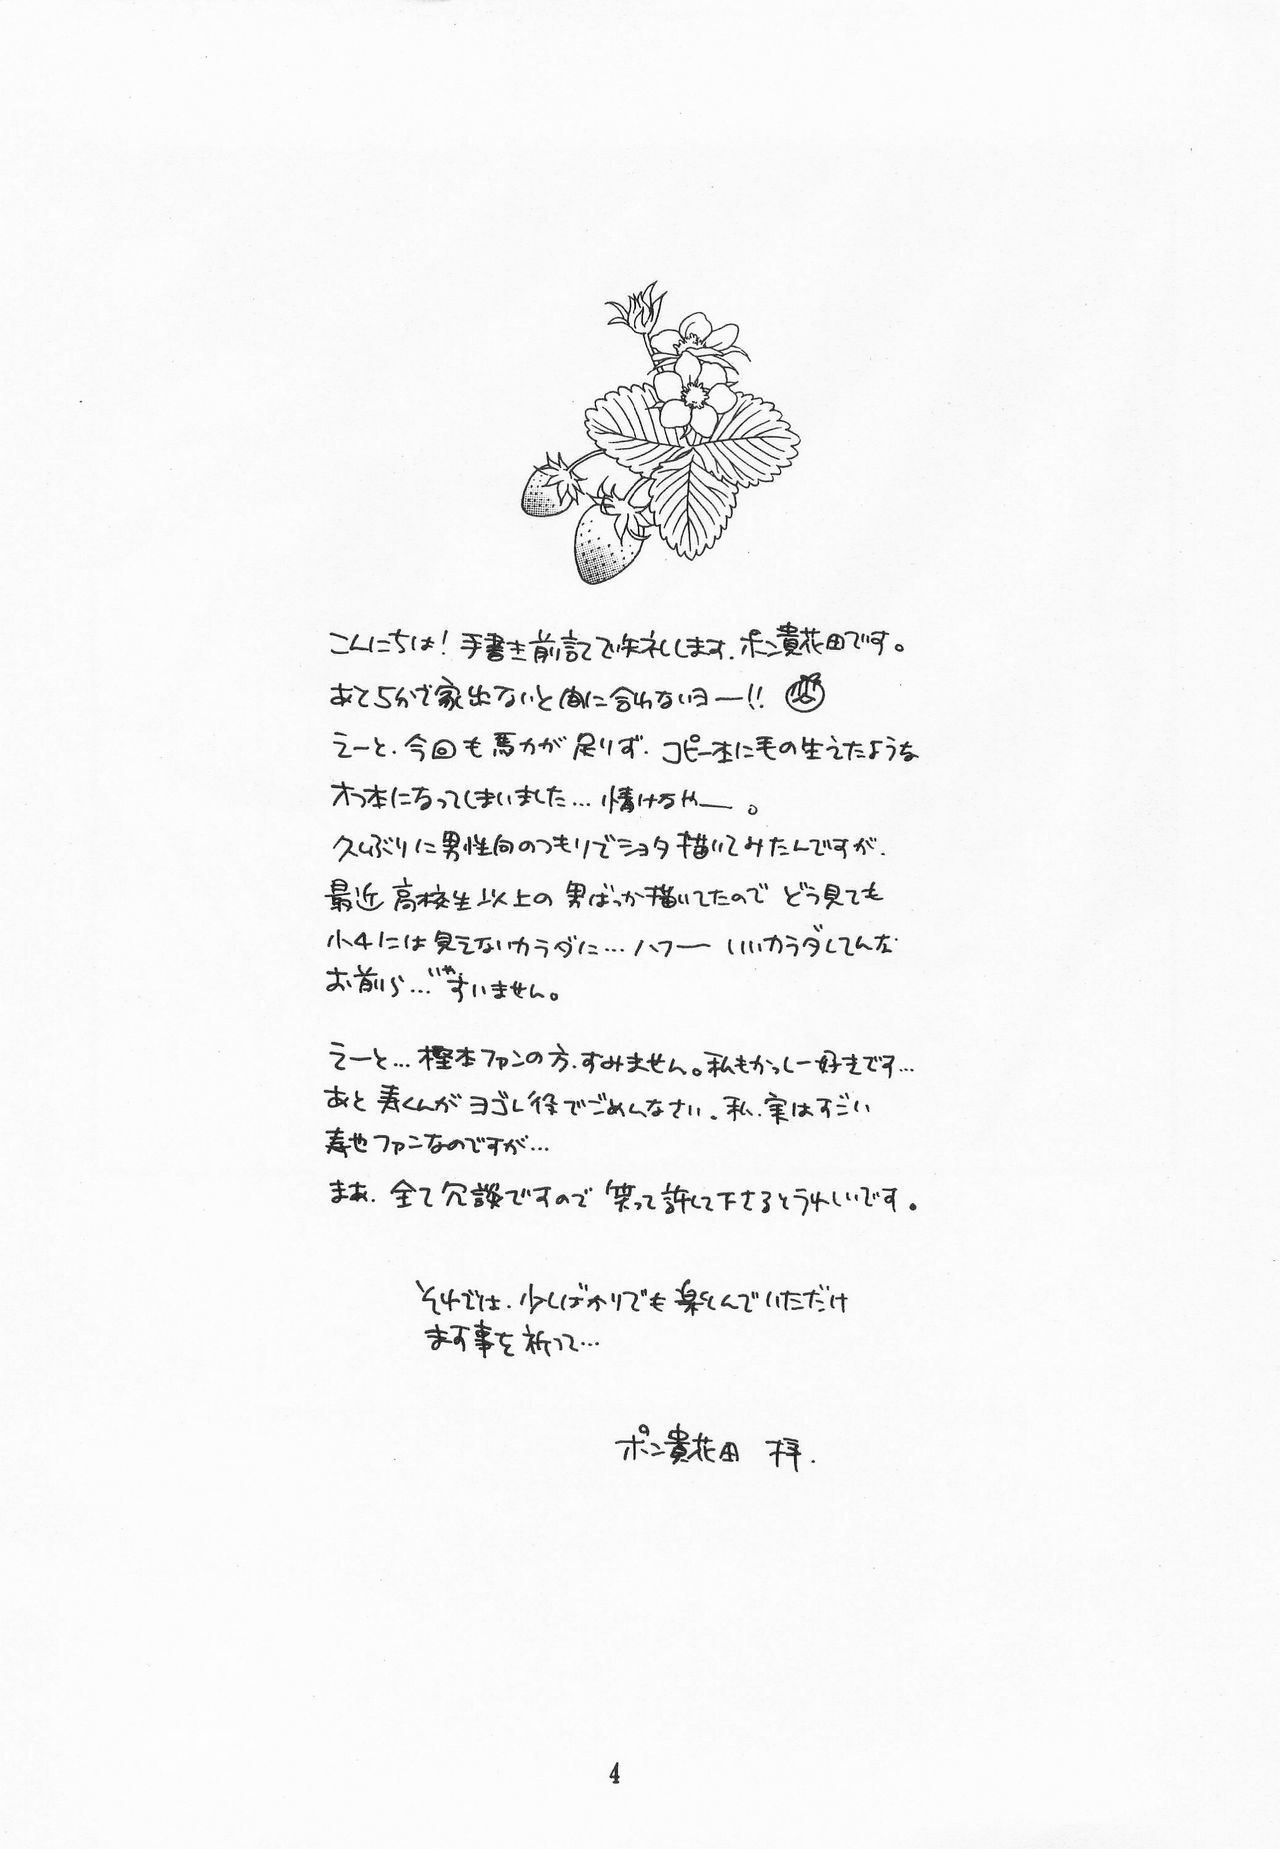 こんにちは！手書き前記で失礼します、ポン貴花田です。
あと5分で家出ないと間に合わないヨー!!
えーと、今回も馬力が足りず、コピー本に毛の生えたような
オフ本になってしまいました…情けなやー。
久しぶりに男性向のつもりでショタ描いてみたんですが、
最近高校生以上の男ばっか描いてたので どう見ても
小4には見えないカラダに…ハフー いいカラダしてんな
お前ら…いやすいません。
えーと…樫本ファンの方、すみません。私もかっしー好きです…
あと寿くんがヨゴレ役でごめんなさい。私、実はすごい
寿也ファンなのですが…
まあ、全て冗談ですので笑って許して下さるとうれしいです。
それでは、少しばかりでも楽しんでいただけ
ます事を祈って…
ポン貴花田 梓.
4